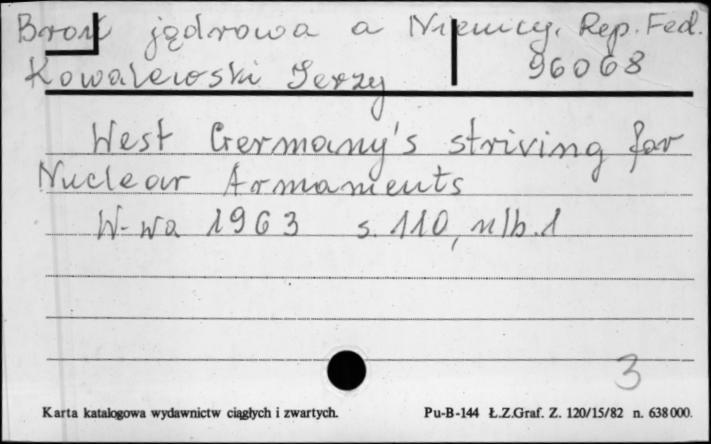 Broń jądrowa a Niemcy, Rep. Fed.
Kowalewski Jerzy 96068
West Germany's striving for
Nuclear Armaments
W-wa 1963 s. 110, nlb. 1
3
Karta katalogowa wydawnictw ciągłych i zwartych. Pu-B-144 Ł.Z.Graf. Z. 120/15/82 n. 638000.